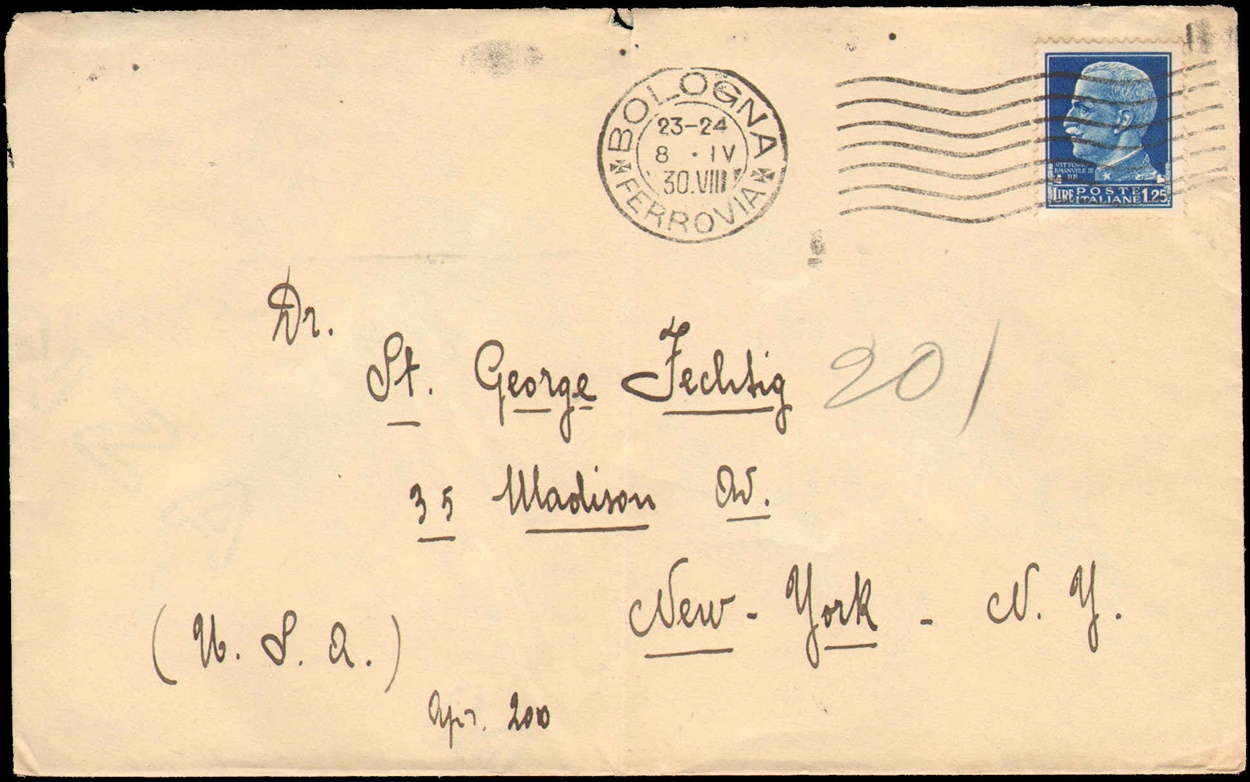 BOLOGNA
23-24
8 · IV
30.VIII
FERROVIA
VITTORIO
EMANVELE III
RE
POSTE
LIRE ITALIANE 1.25
Dr.
St. George Fechtig 201
35 Madison Av.
New-York - N. Y.
(U. S. A.)
Apr. 200